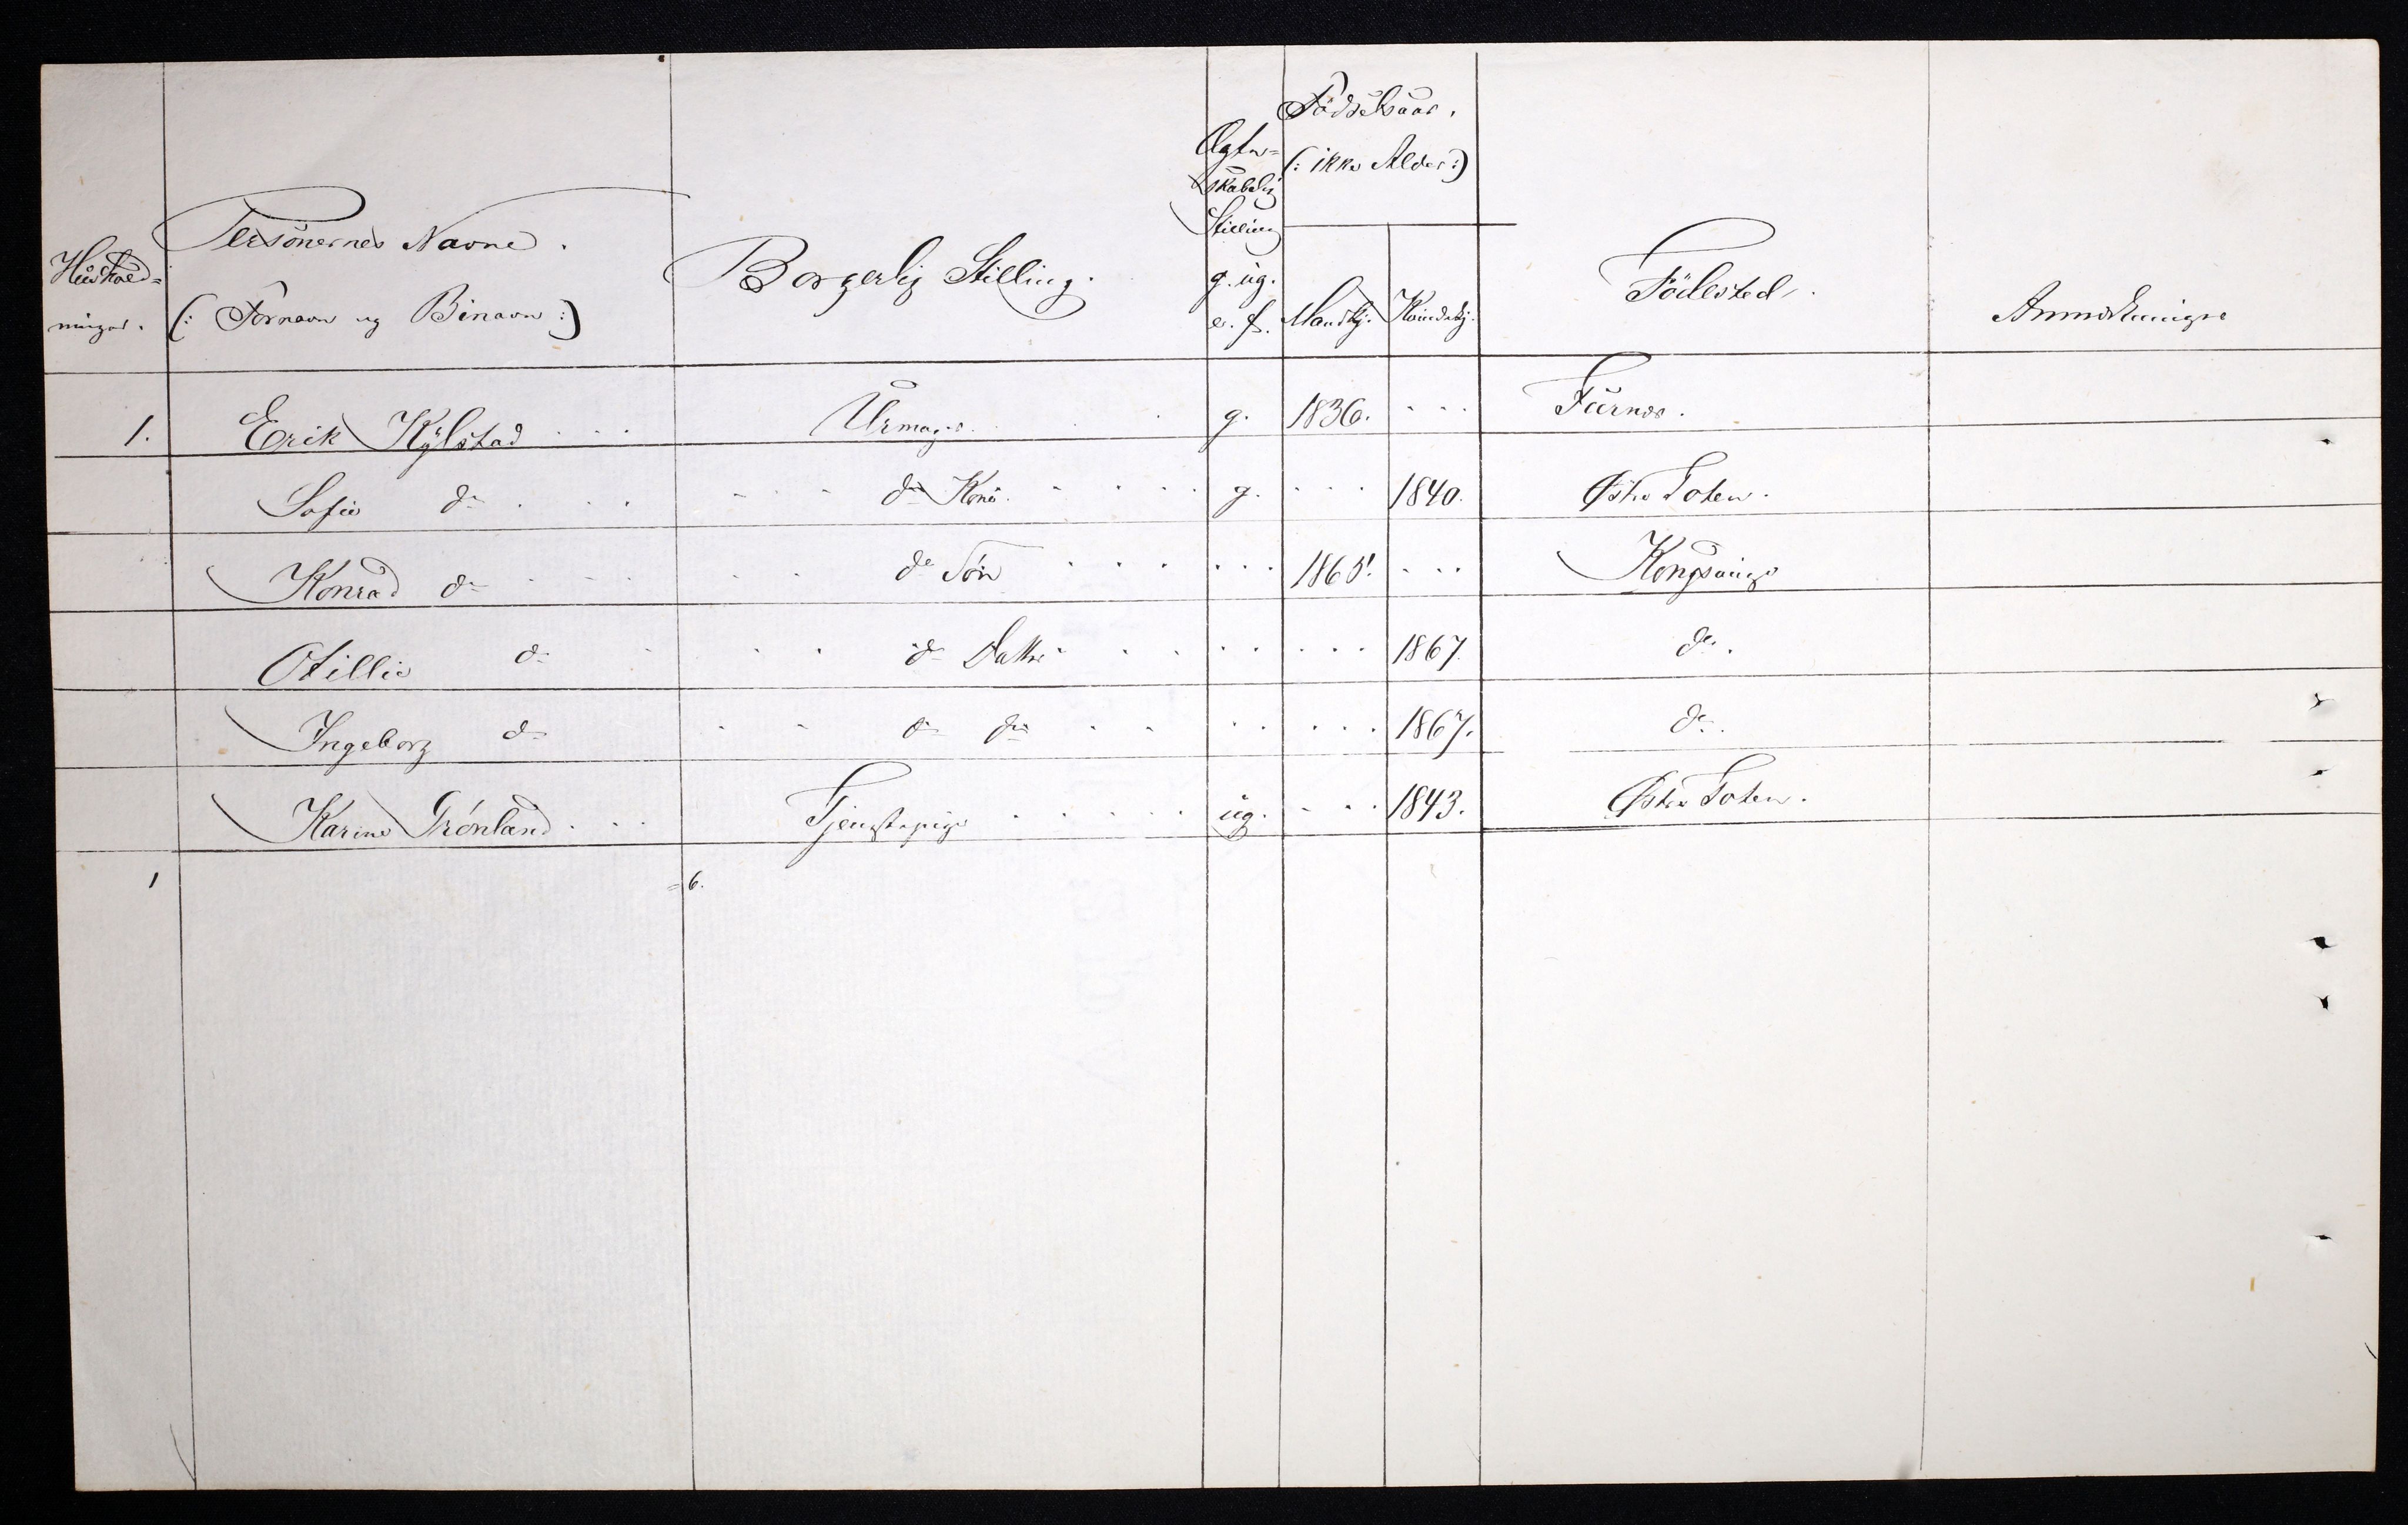 Huushold=
ninger.
Personernes Navne.
(: Fornavn og Binavn :)
Borgerlig Stilling.
Ægte=
skabelig
Stilling
g. ug.
e. f.
Fødselsaar.
(: ikke Alder :)
Mandkj. Kvindekj.
Födested.
Anmærkninger
1. Erik Kylstad Urmager g. 1836. Furnes.
Sofie do do Kone g. 1840. Østre Toten.
Konrad do do Sön 1865. Kongsvinger
Otillie do do Datter 1867. do.
Ingeborg do do do 1867. do.
Karine Grönland Tjenestepige ug. 1843. Østre Toten.
1 = 6.